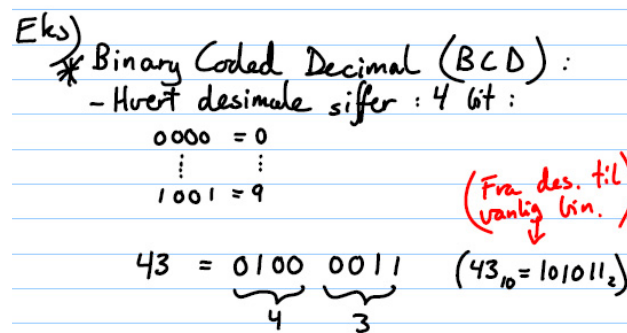 Eks)
* Binary Coded Decimal (BCD):
- Hvert desimale siffer : 4 bit :
0000 = 0
⋮ ⋮
1001 = 9
(Fra des. til
vanlig bin.)
43 = 0100 0011 (43₁₀ = 101011₂)
4 3